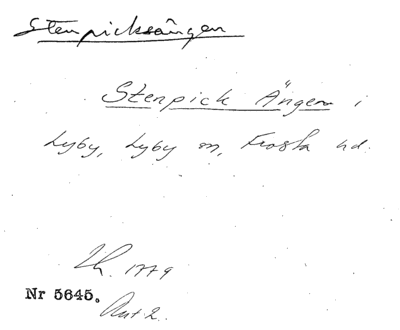 Stenpicksängen
Stenpick Ängen i
Lyby, Lyby sn, Frosta hd.
Lh. 1779
Nr 5645.
Akt 2.